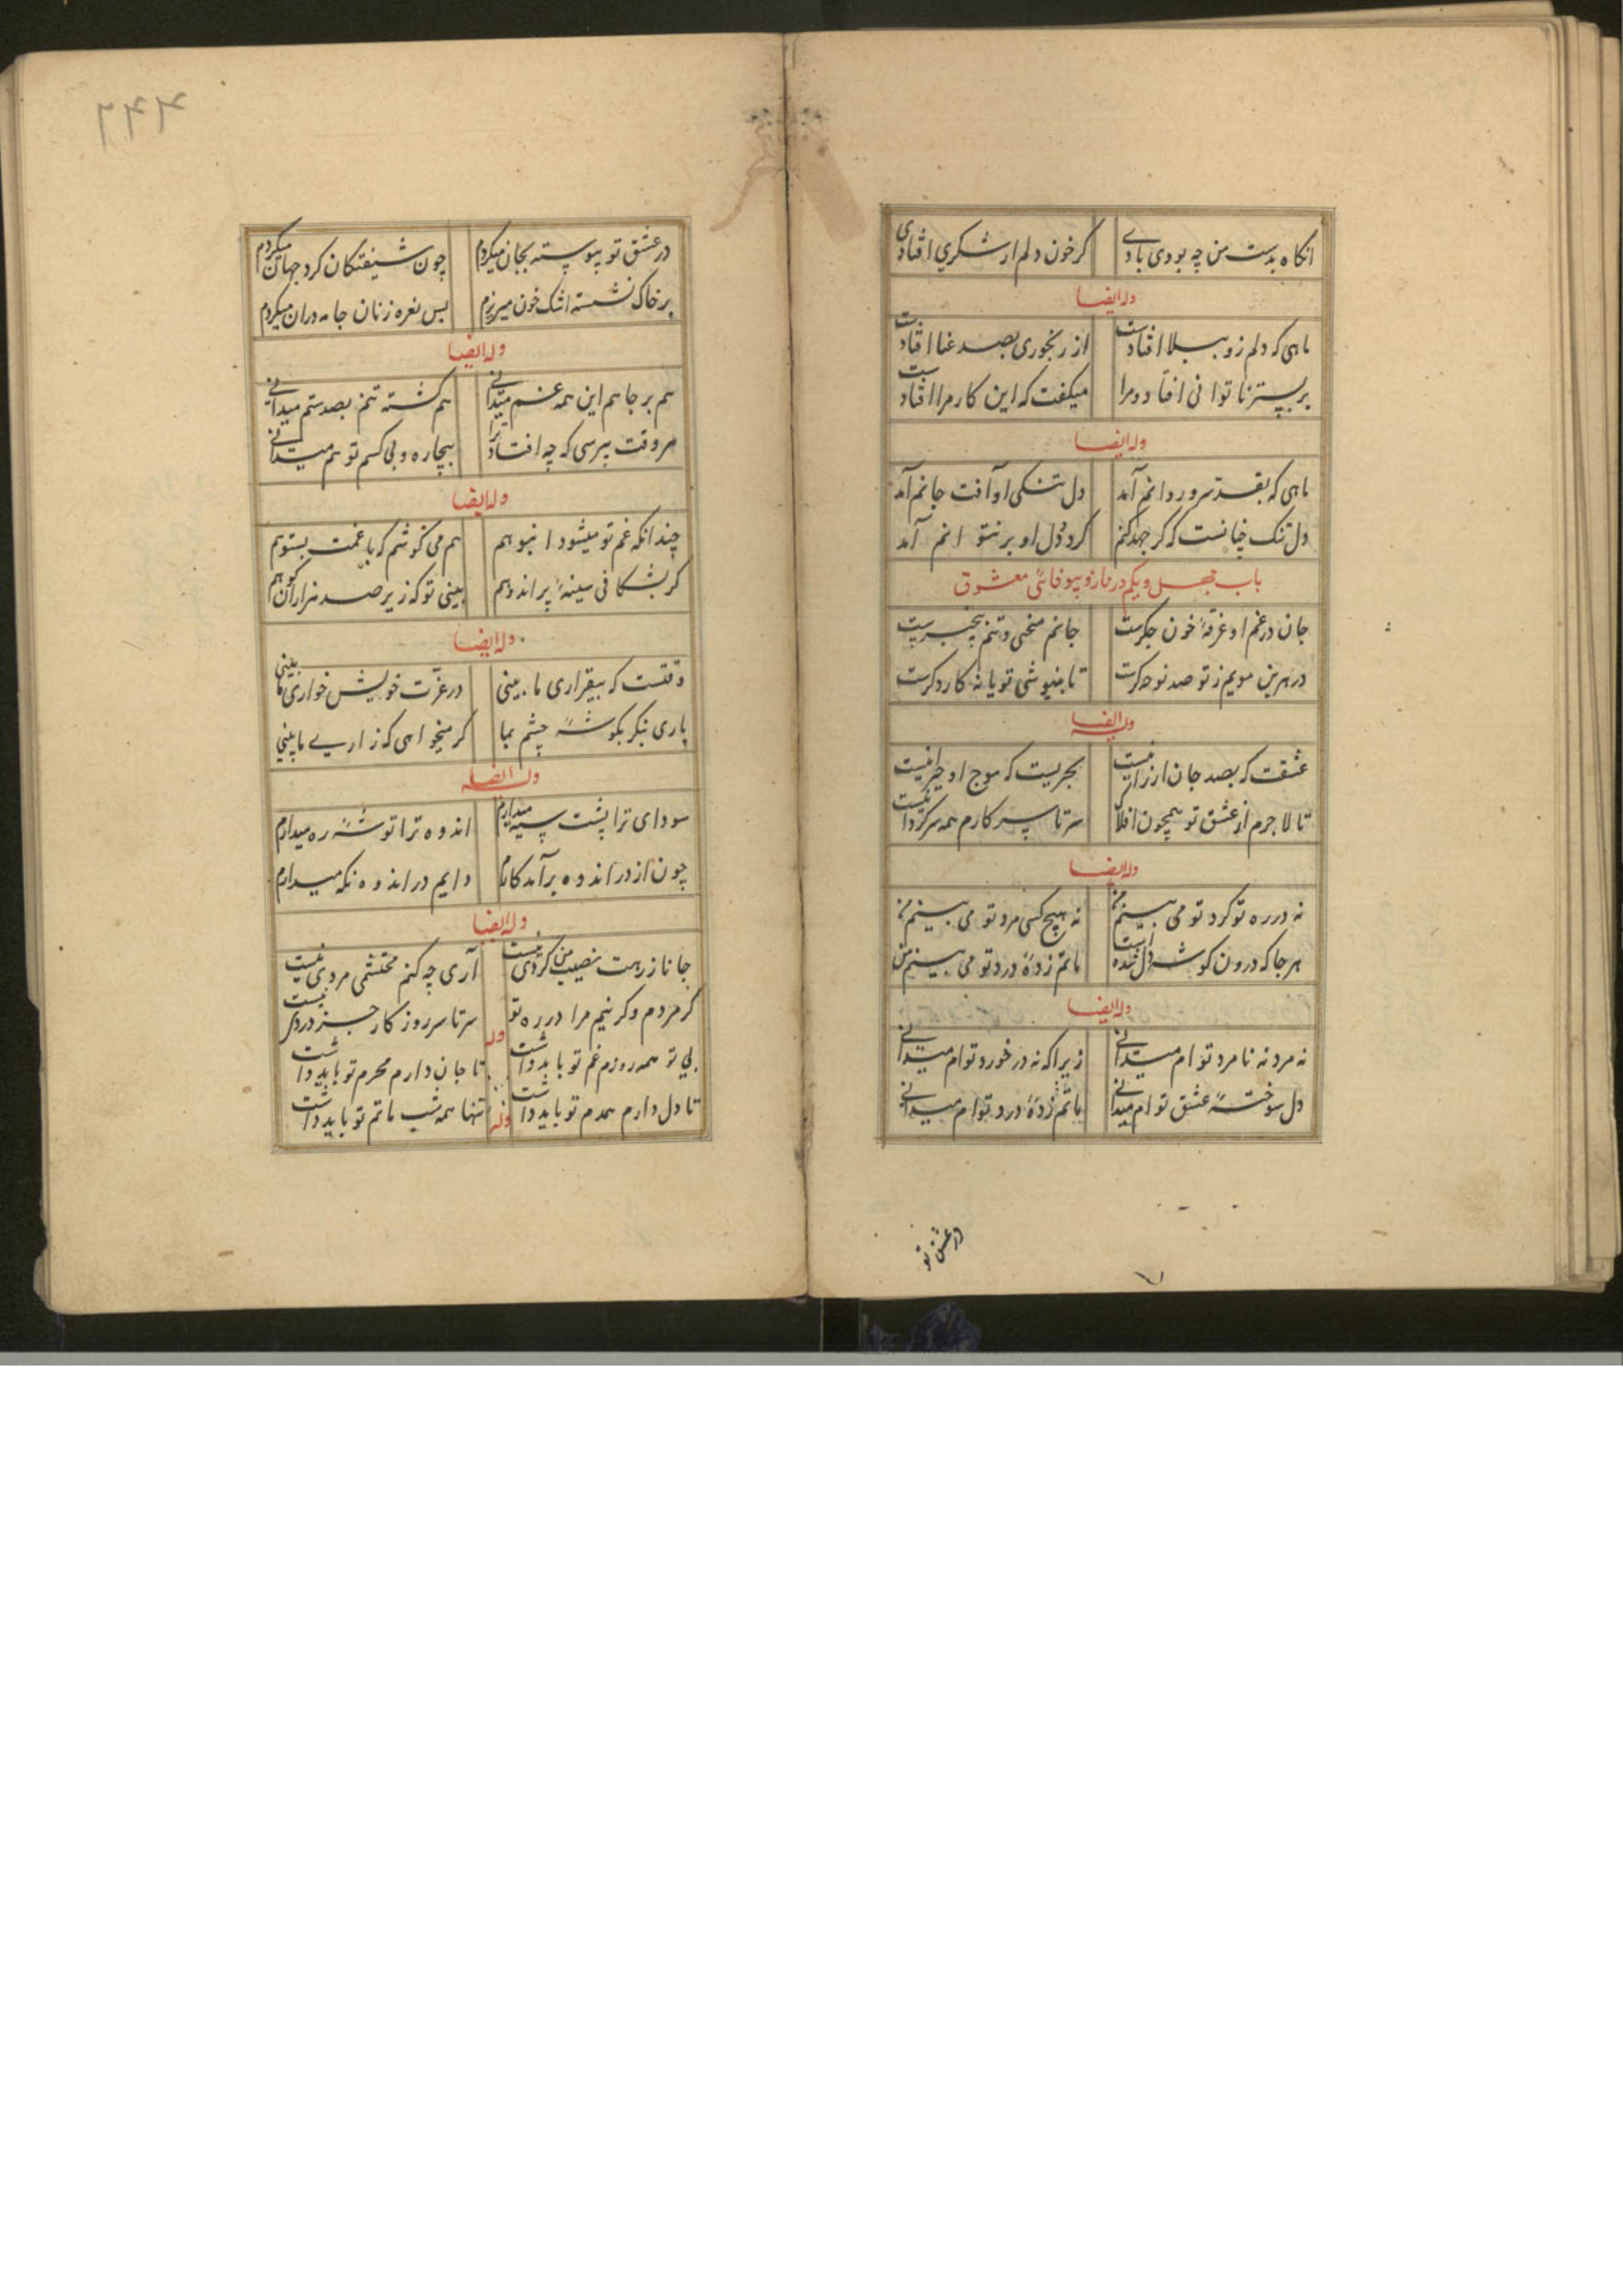 انکاه بدست من چه بودی بادے کر خون دلم از شکری افتادی
وله ایضا
ماهی که دلم زو ببلا افتادست از رنجوری بصد عنا افتادست
بر بستر ناتوانی افتاد و مرا میکفت که این کار مرا افتادست
وله ایضا
ماهی که بقد سرو روانم آمد دل تنکی او آفت جانم آمد
دل تنک چنانست که کر جهد کنم کرد دل او بر نتوانم آمد
باب چهل ویکم در ناز و بیوفائی معشوق
جان در غم او غرقهٔ خون جکرست جانم منحنی و تنم بیخبرست
در هر بن مویم ز تو صد نوحه کرست تا بنیوشی تو یا نه کار دکرست
وله ایضا
عشقت که بصد جان ارزانیست بحریست که موج او حیرانیست
تا لاجرم از عشق تو همچون افلاک سر تا سر کارم همه سرکردانیست
وله ایضا
نه در ره تو کرد تو می بینم من نه هیچ کسی مرد تو می بینم من
هر جا که درون کوشهٔ دل شده است ماتم زدهٔ درد تو می بینم من
وله ایضا
نه مرد نه نامرد توام میدانے زیرا که نه در خورد توام میدانے
دل سوختهٔ عشق توام میدانے ماتم زدهٔ درد توام میدانے
در عشق تو
در عشق تو پیوسته بجان میکردم چون شیفتکان کرد جهان میکردم
بر خاک نشسته اشک خون میریزم بس نعره زنان جامه دران میکردم
وله ایضا
هم بر جانم این همه غم میدانے هم کشته تنم بصد ستم میدانے
هر وقت بپرسی که چه افتاد ترا بیچاره و بی کسم تو هم میدانے
وله ایضا
چندانکه غم تو میشود انبوهم هم می کوشم که با غمت بستوهم
کر بشکافی سینهٔ پر اندوهم بینی تو که زیر صد هزاران کوهم
وله ایضا
وقتست که بیقراری ما بینی در عزت خویش خواری ما بینی
باری بنکر بکوشهٔ چشم بما کر میخواهی که زاریے ما بینی
وله ایضا
سودای ترا پشت سپه میدارم اندوه ترا توشهٔ ره میدارم
چون از در اندوه برآمد کارم دایم در اندوه نکه میدارم
وله ایضا
جانا ز رهت نصیب من کردی نیست آری چه کنم محتشمی مردی نیست
کر مردم وکر نیم مرا در ره تو سر تا سر روز کار جز دردی نیست
وله
بی تو همه روزم غم تو باید داشت تا جان دارم محرم تو باید داشت
تا دل دارم همدم تو باید داشت تنها همه شب ماتم تو باید داشت
وله